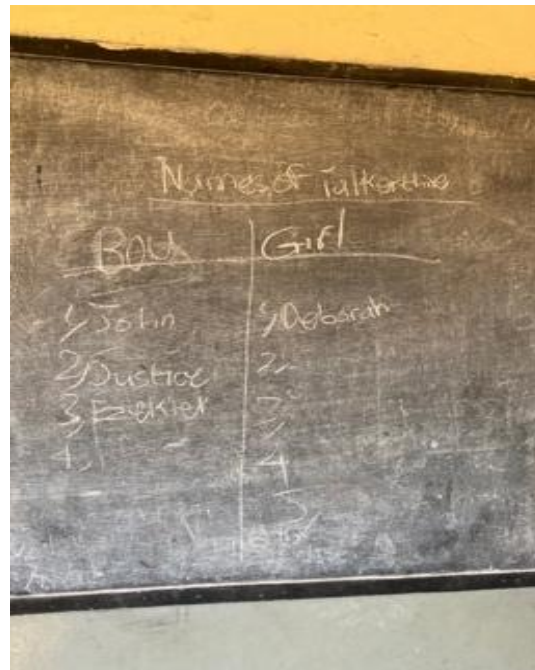 Names of Talkertive
Boy | Girl
1, John | 1, Deborah
2, Justice | 2,
3, Ezekiel | 3,
4, | 4
5,